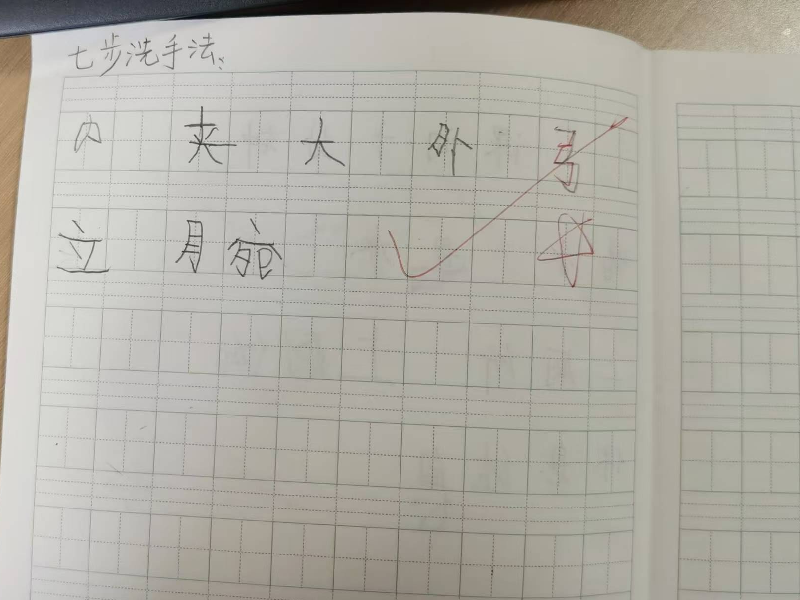 七步洗手法:
内 夹 大 外 弓
立 月宛